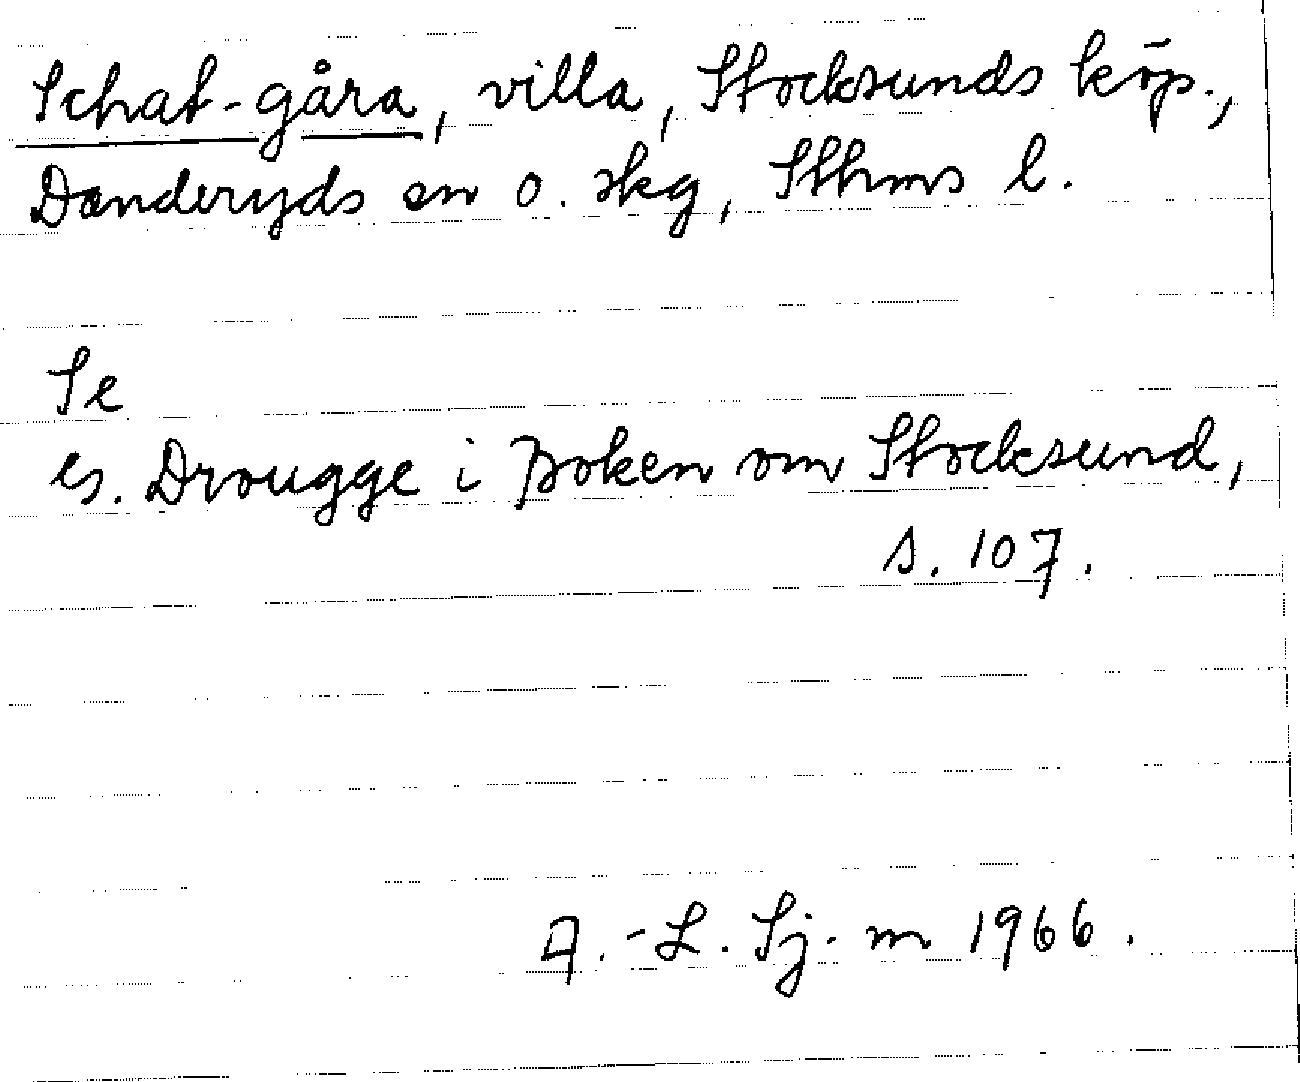 Schat-gåra, villa, Stocksunds köp.,
Danderyds sn o. skg, Sthms l.
Se
G. Drougge i Boken om Stocksund,
s. 107.
A.-L. Sj-m 1966.